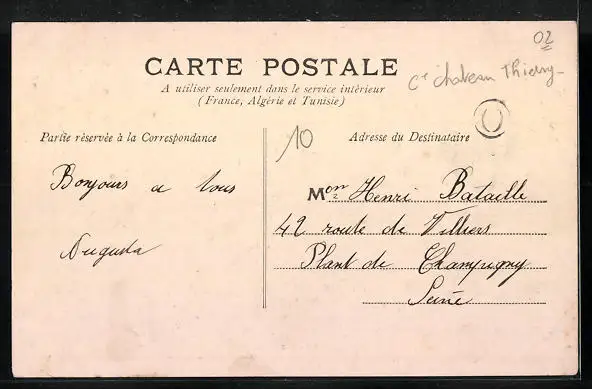 02
CARTE POSTALE
Cⁿ chateau Thierry
A utiliser seulement dans le service intérieur
(France, Algérie et Tunisie)
10
Partie réservée à la Correspondance
Adresse du Destinataire
Bonjours a tous
Augusta
Mon Henri Bataille
42 route de Villiers
Plant de Champigny
Seine